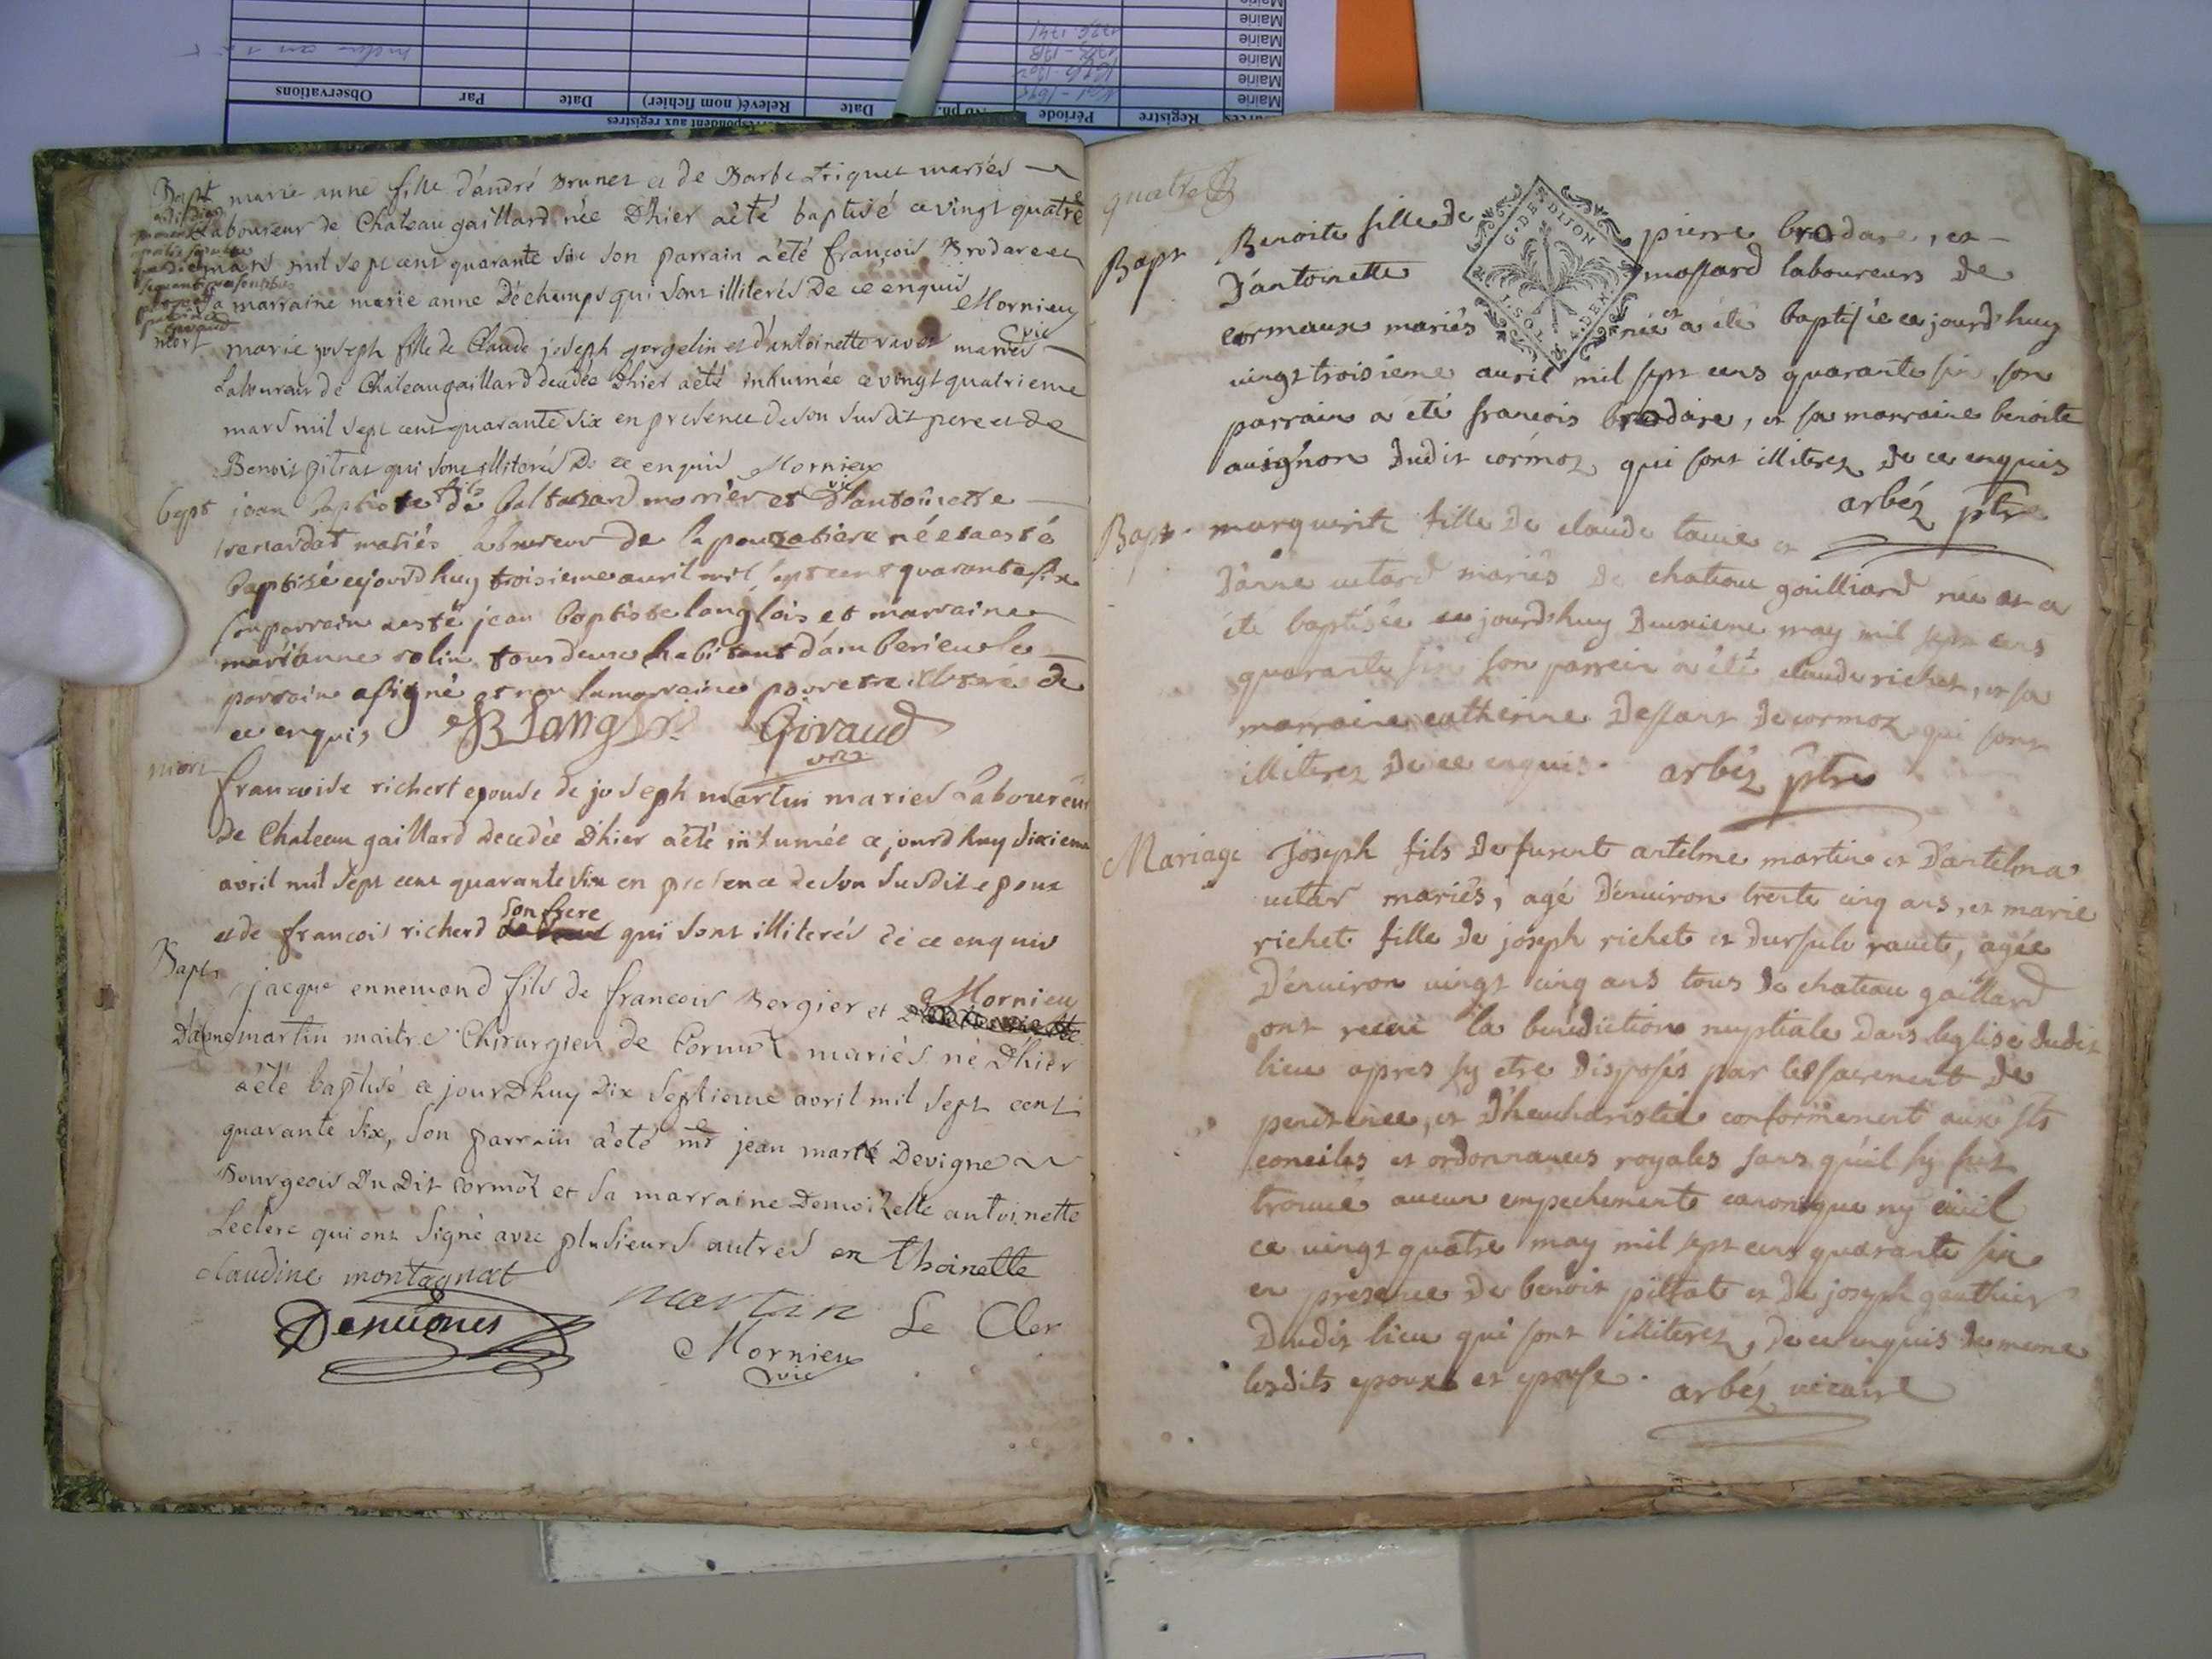 Mairie
Mairie
Mairie
Mairie
Registre
Période
Date
Relevé( nom fichier)
Date
Par
Observations
respondent aux registres
Bapt marie anne fille d'andré Brunet et de Barbe triquet mariés
Laboureur de Chateau gaillard née Dhier a été baptisé ce vingt quatre
mars mil sept cent quarante six son parrain a été françois Brodare et
sa marraine marie anne Déchamps qui sont illiterés De ce enquis
Mornieu
vic
mort marie joseph fille de Claude joseph gorgelin et d'antoinette ravet mariés
Laboureur de Chateaugaillard decedée Dhier a été inhumée ce vingt quatrieme
mars mil sept cent quarante six en presence de son susdit pere et de
Benoit pitrat qui sont illiterés De ce enquis Mornieu
vic
bapt jean baptiste fils de baltazard morrier et d'antoinette
renardat mariés laboureur de la pouzatiere né et a esté
baptisé cejourdhuy troisieme avril mil sept cent quarante six
son parrain a esté jean baptiste langlois et marraine
marianne rolin tous deux habitant d'amberieu le
parrain a signé et non la marraine pour etre illiteré de
ce enquis JB Langlois Givaud
vic
mort francoise richert epouse de joseph martin mariés Laboureur
de Chateau gaillard decedée Dhier a été inhumée ce jourdhuy dixieme
avril mil sept cent quarante six en presence de son susdit epoux
et de francois richerd son frere qui sont illiterés de ce enquis
Mornieu
Bapt jacque ennemond fils de francois Bergier et
D'anne martin maitre Chirurgien de Cormoz mariés né Dhier
a été baptisé ce jourdhuy dix septieme avril mil sept cent
quarante six, son parrain a été mr jean marie Devigne
Bourgeois Du Dit Cormoz et sa marraine Demoizelle antoinette
Leclerc qui ont signé avec plusieurs autres en thoinette
claudine montagnat
martin Le Cler
Devignes
Mornieu
vic
quatre
G. DE DIJON
Bapt Benoite fille de pierre brodare, et
D'antoinette massard laboureurs de
cormaux mariés née et a été baptisée ce jourd'huy
vingt troisieme avril mil sept cens quarante six, son
parrain a été francois brodare, et sa marraine benoite
auignon Dudit cormoz, qui sont illiterez De ce enquis
arbéz ptre
Bapt. marguerite fille De claude tavie et
D'anne uctard mariés De chateau gailliard née et a
été baptisée ce jourd'huy Deuxieme may mil sept cens
quarante six son parrein a été claude richet, et sa
marraine catherine Dessart De cormoz qui sont
illiterez De ce enquis. arbéz ptre
Mariage Joseph fils De furent antelme martin et D'antelma
uctar mariés, agé D'enuiron trente cinq ans, et marie
richet fille De joseph richet et dursule rauet, agée
D'enuiron uingt cinq ans tous De chateau gaillard
ont receu la benediction nuptiale Dans leglise Dudit
lieu apres sy etre Disposés par les sacrement De
penitence, et D'heucharistie conformement aux sts
conciles et ordonnances royales sans qu'il sy soit
trouué aucun empechement canonique ny ciuil
ce uingt quatre may mil sept cens quarante six
en presence De benoit piltrat et De joseph gauthier
Dudit lieu qui sont illiterez, De ce enquis De meme
lesdits epoux et epouse. arbéz uicaire